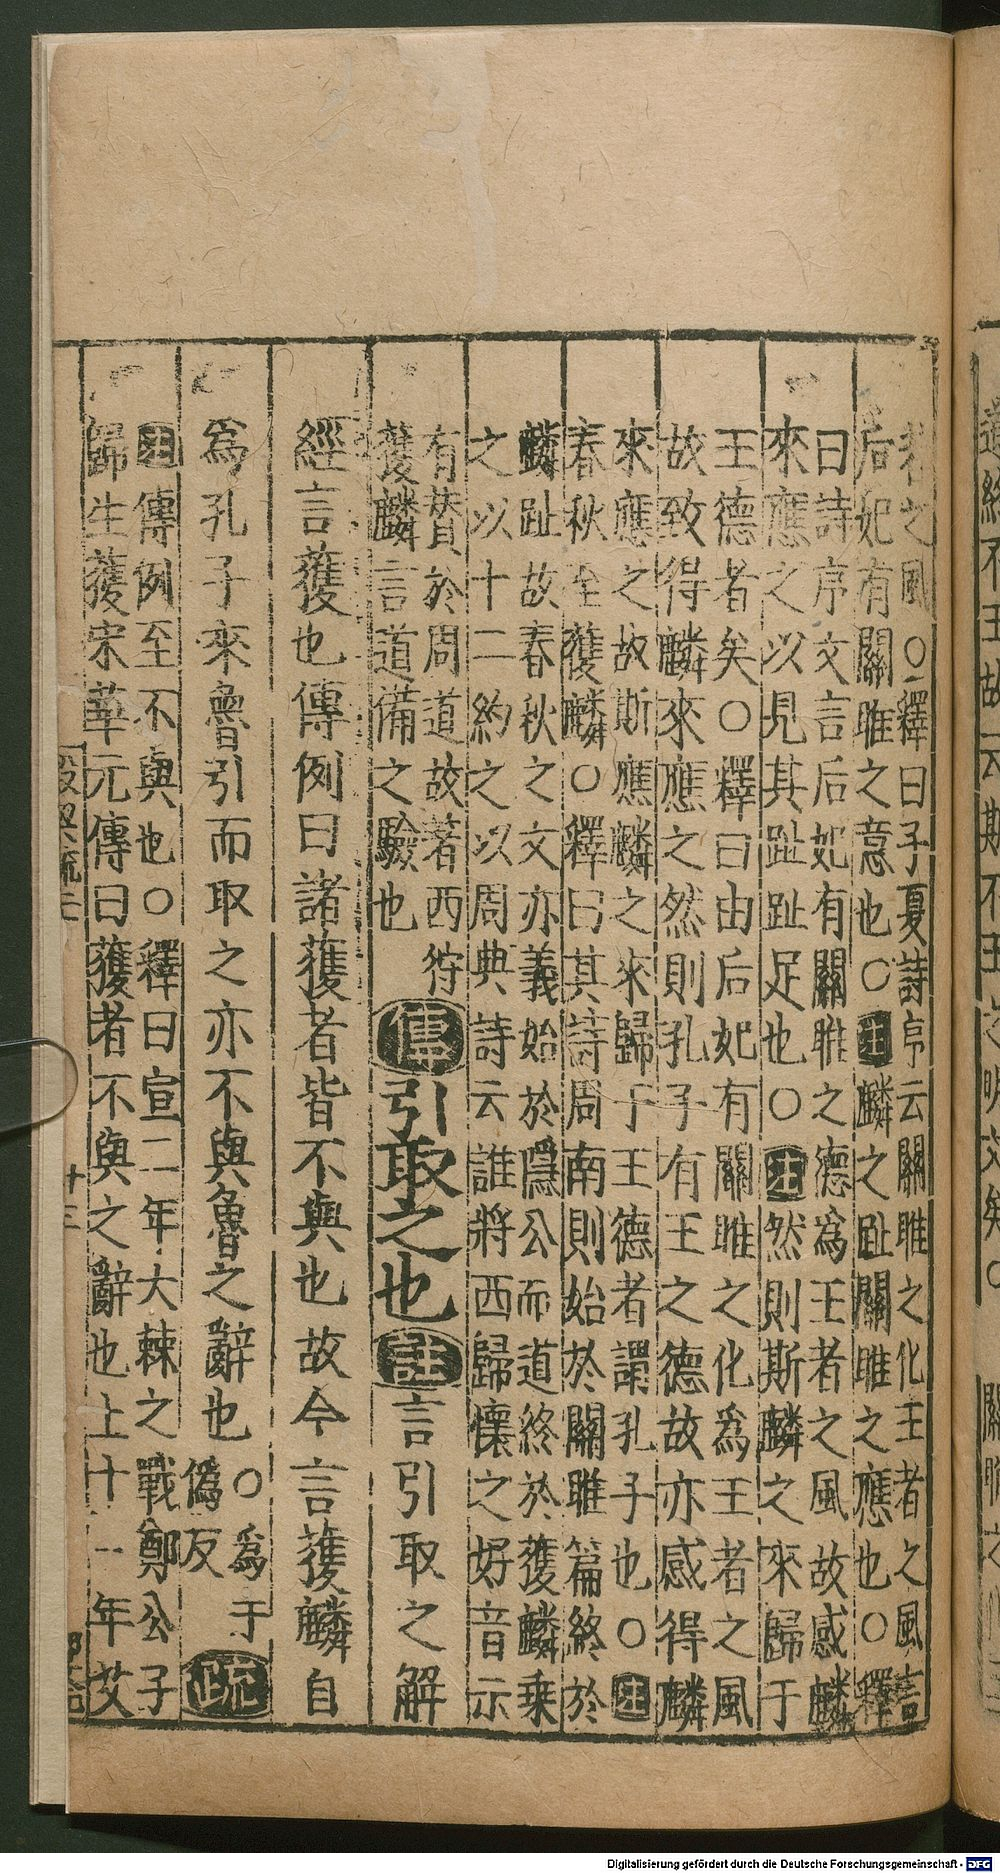 者之風○釋曰子夏詩序云關雎之化王者之風言
后妃有關雎之意也○注麟之趾關雎之應也○釋
曰詩序文言后妃有關雎之德為王者之風故感麟
來應之以見其趾趾足也○注然則斯麟之來歸于
王德者矣○釋曰由后妃有關雎之化為王者之風
故致得麟來應之然則孔子有王之德故亦感得麟
來應之故斯應麟之來歸于王德者謂孔子也○注
春秋至獲麟○釋曰其詩周南則始於關雎篇終於
麟趾故春秋之文亦義始於隱公而道終於獲麟乗
之以十二約之以周典詩云誰將西歸懷之好音示
有賛於周道故著西狩
獲麟言道備之驗也
傳引取之也註言引取之解
經言獲也傳例曰諸獲者皆不與也故今言獲麟自
為孔子來魯引而取之亦不與魯之辭也○為于
偽反
疏
注傳例至不與也○釋曰宣二年大棘之戰鄭公子
歸生獲宋華元傳曰獲者不與之辭也上十一年艾
十三
Digitalisierung gefördert durch die Deutsche Forschungsgemeinschaft - DFG